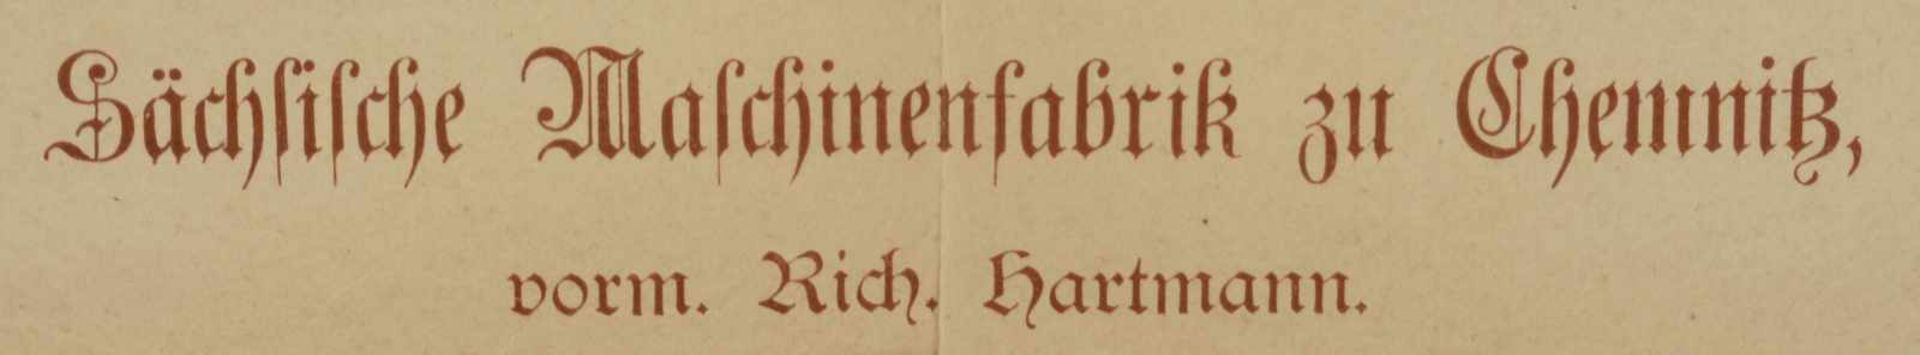 Sächſiſche Maſchinenfabrik zu Chemnitz,
vorm. Rich. Hartmann.